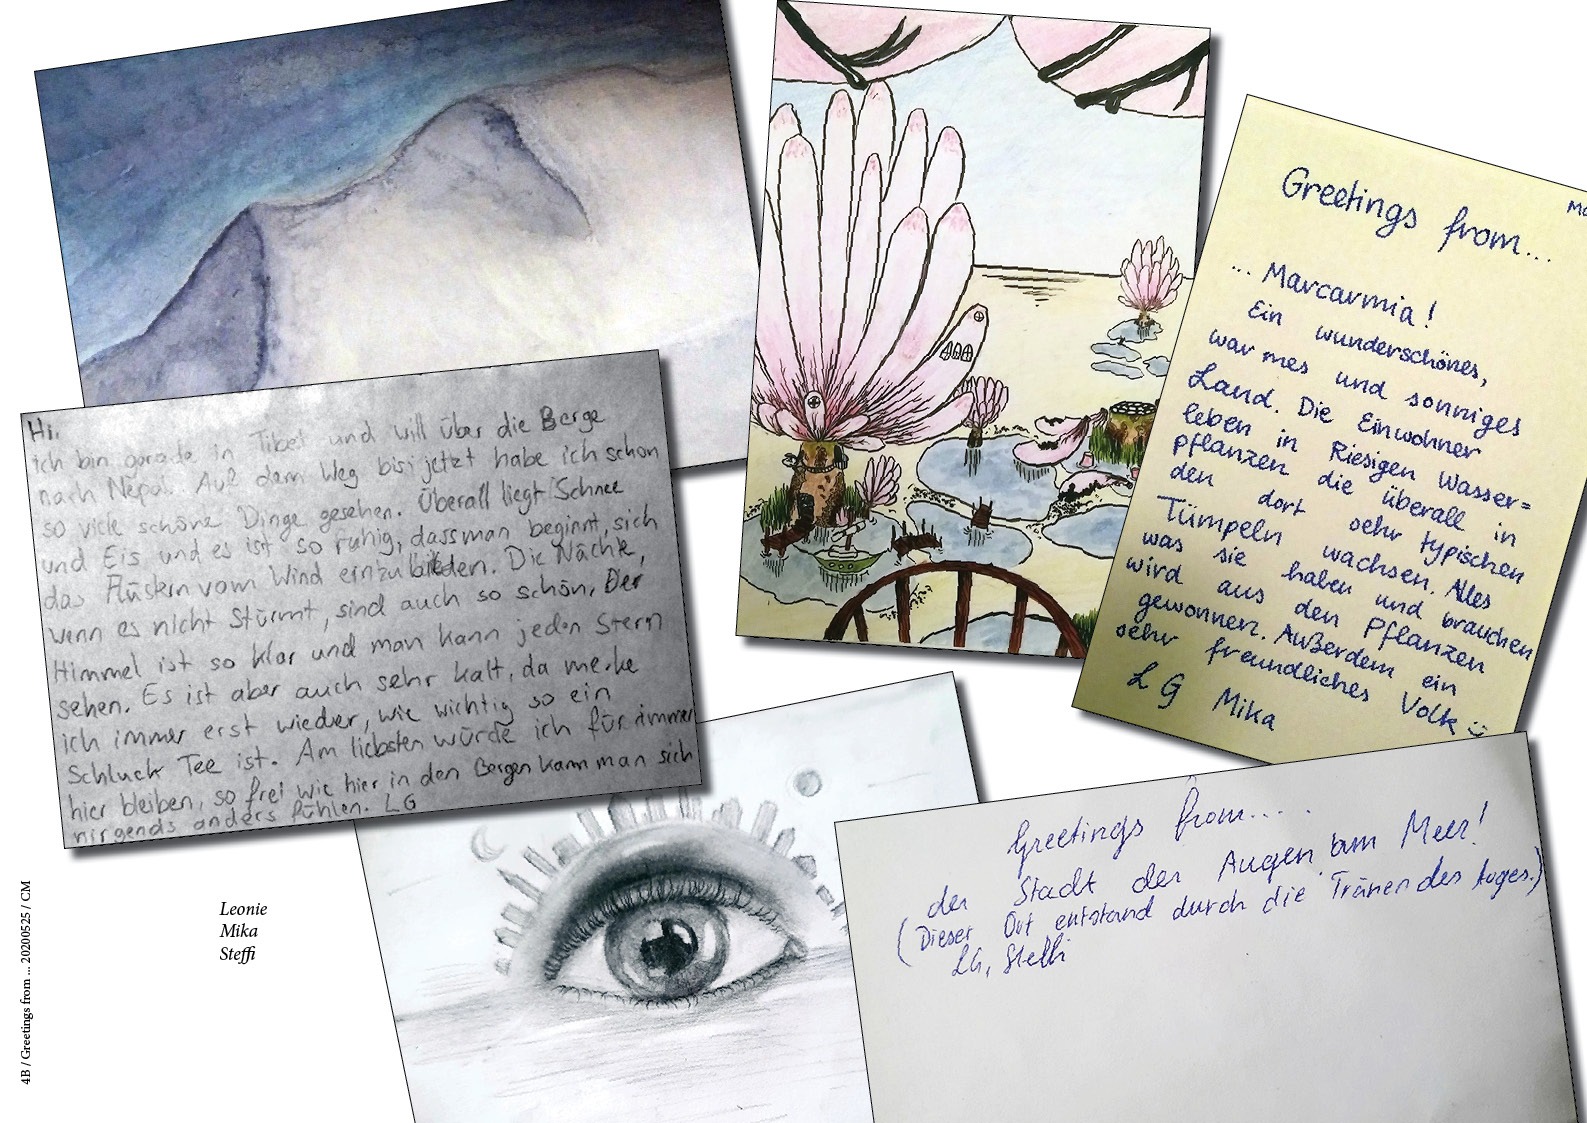 Hi,
ich bin gerade in Tibet und will über die Berge
nach Nepal. Auf dem Weg bis jetzt habe ich schon
so viele schöne Dinge gesehen. Überall liegt Schnee
und Eis und es ist so ruhig, dass man beginnt, sich
das Flüstern vom Wind einzubilden. Die Nächte,
wenn es nicht Stürmt, sind auch so schön, Der
Himmel ist so klar und man kann jeden Stern
sehen. Es ist aber auch sehr kalt, da merke
ich immer erst wieder, wie wichtig so ein
Schluck Tee ist. Am liebsten würde ich für immer
hier bleiben, so frei wie hier in den Bergen kann man sich
nirgends anders fühlen. LG
Greetings from...
... Marcarmia!
Ein wunderschönes,
warmes und sonniges
Land. Die Einwohner
leben in Riesigen Wasser=
pflanzen die überall in
den dort sehr typischen
Tümpeln wachsen. Alles
was sie haben und brauchen
wird aus den Pflanzen
gewonnen. Außerdem ein
sehr freundliches Volk
LG Mika
Greetings from....
der Stadt der Augen am Meer!
(Dieser Ort entstand durch die Tränen des Auges.)
LG, Steffi
Leonie
Mika
Steffi
4B / Greetings from ... 20200525 / CM